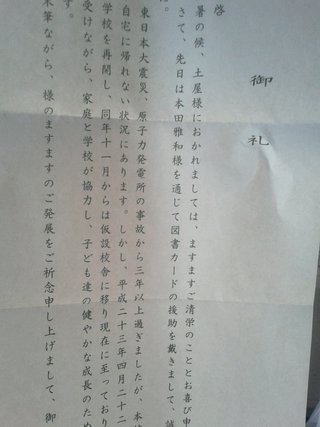 御 礼
啓
暑の候、土屋様におかれましては、ますますご清栄のこととお喜び申
さて、先日は本田雅和様を通じて図書カードの援助を戴きまして、誠
た。
東日本大震災、原子力発電所の事故から三年以上過ぎましたが、本
自宅に帰れない状況にあります。しかし、平成二十三年四月二十二
学校を再開し、同年十一月からは仮設校舎に移り現在に至っており
受けながら、家庭と学校が協力し、子ども達の健やかな成長のため
す。
末筆ながら、様のますますのご発展をご祈念申し上げまして、御